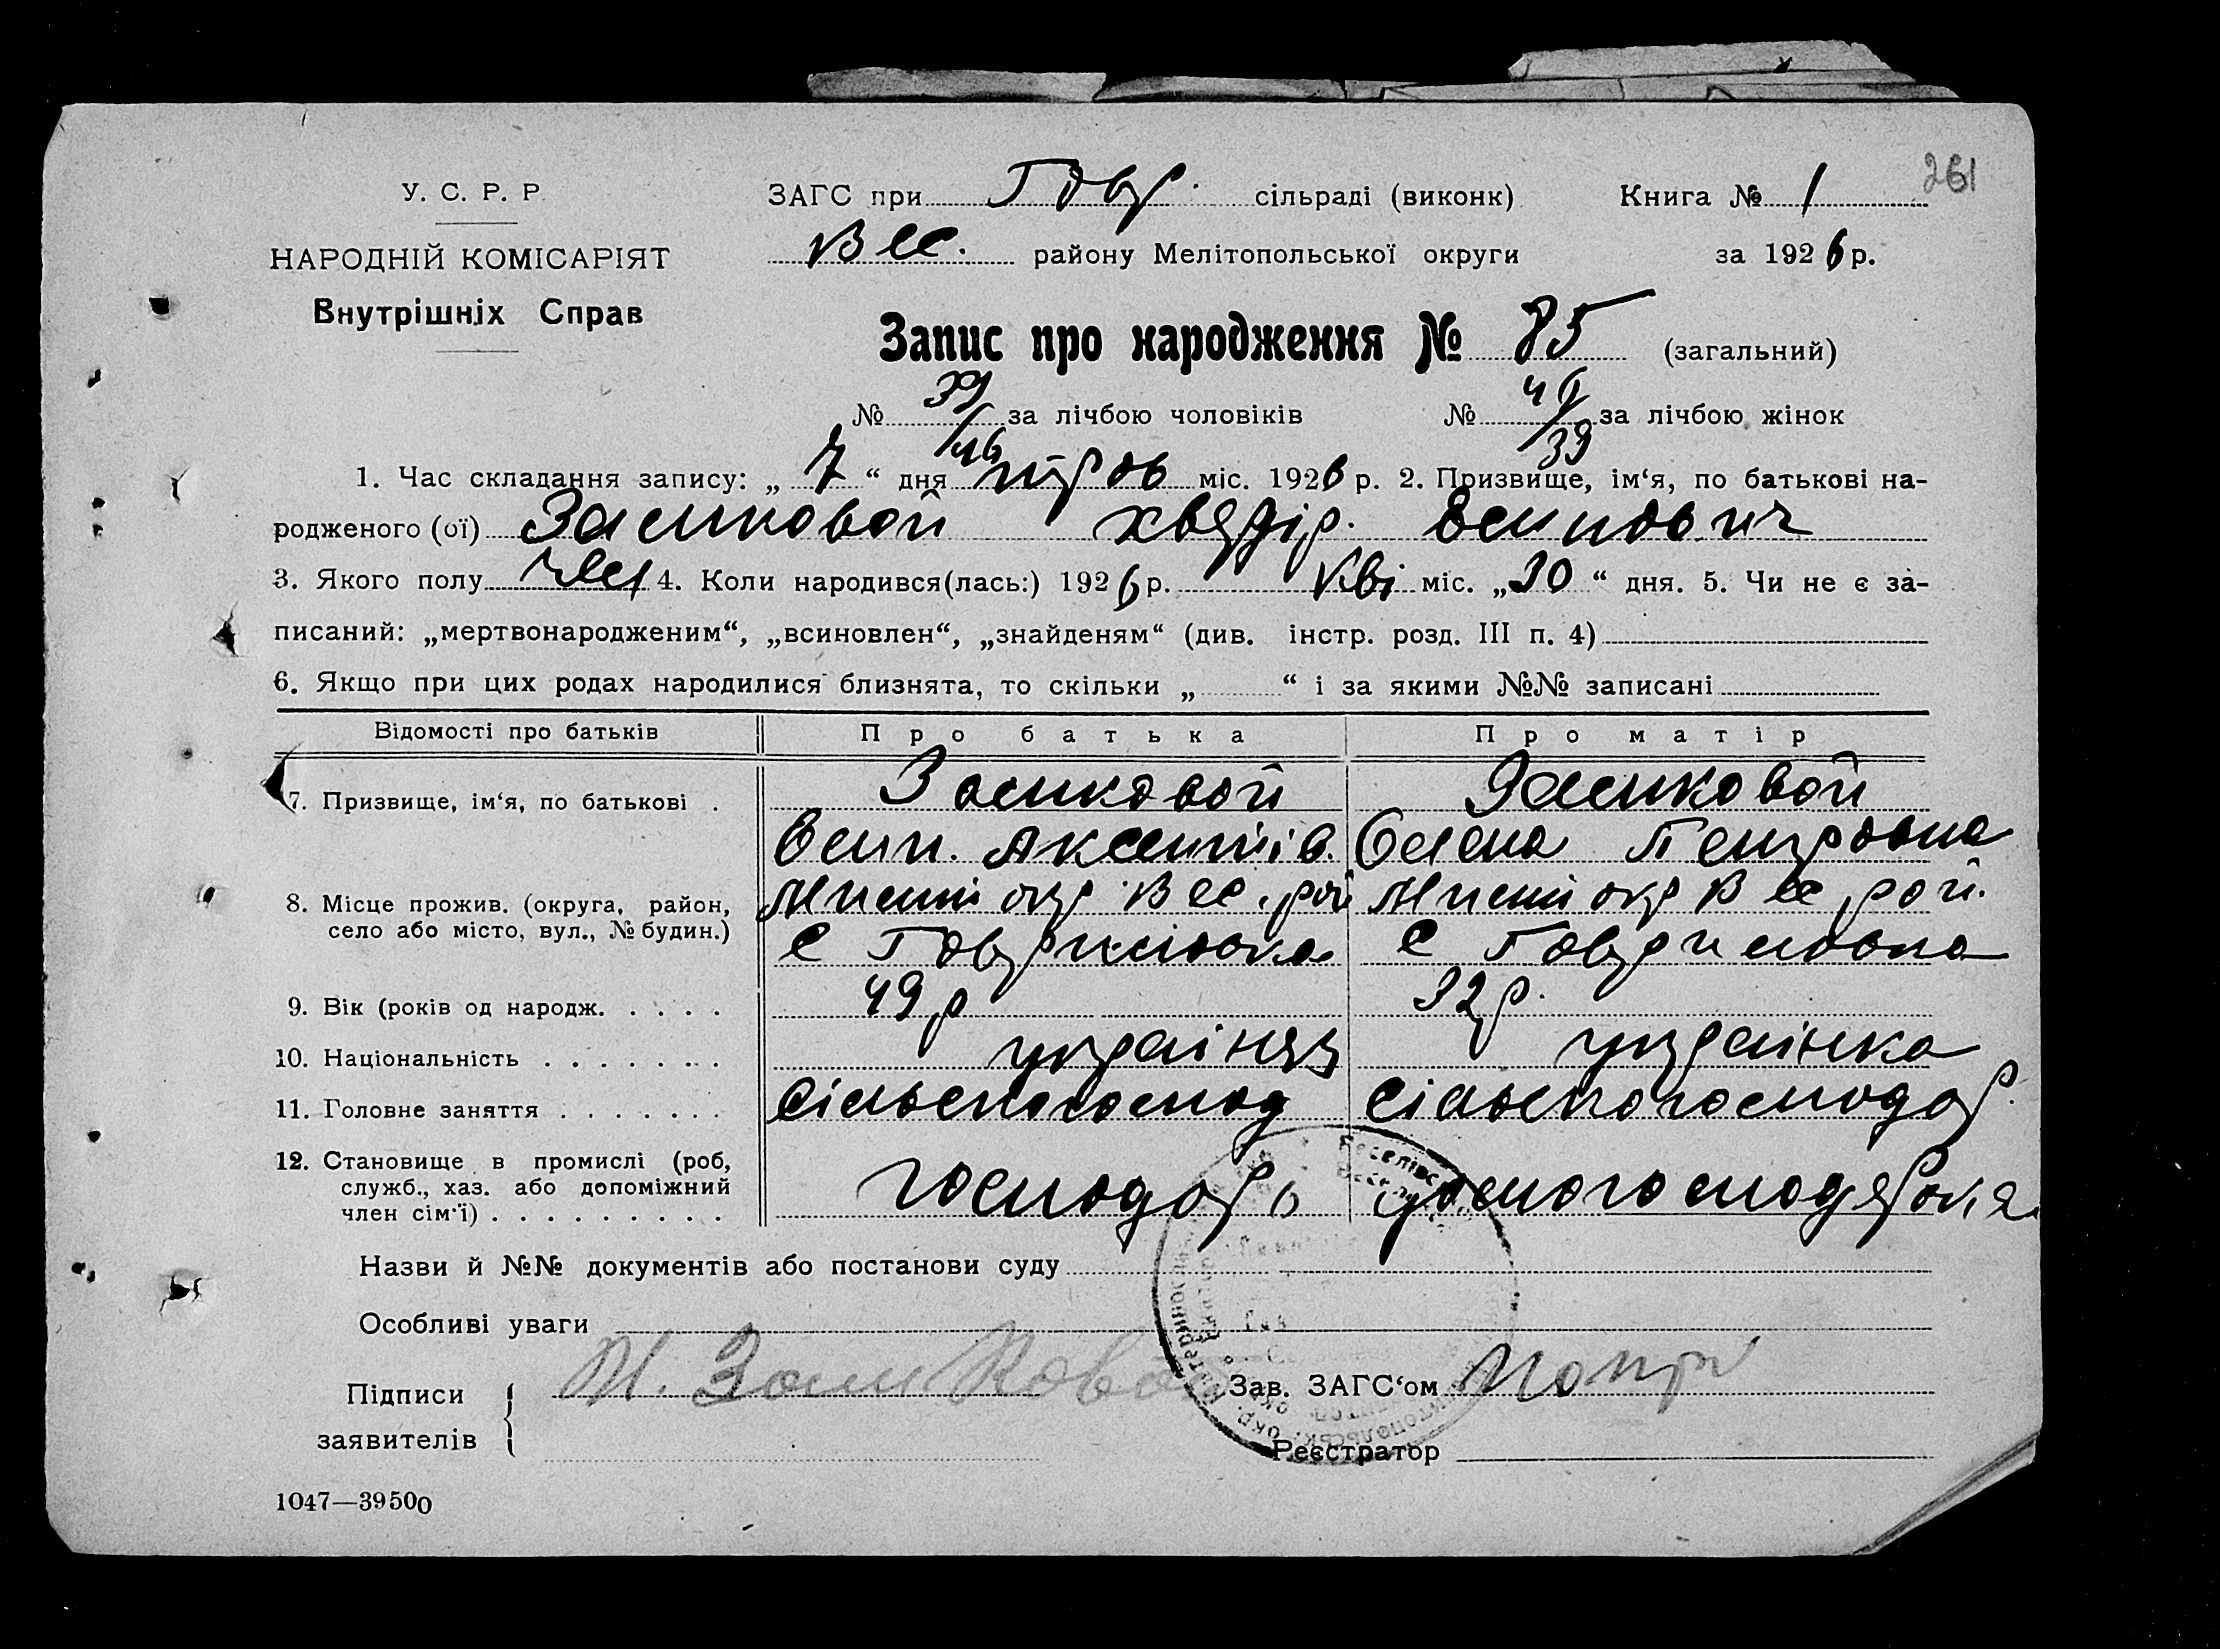 261
У. С. Р. Р.
ЗАГС при Гавр. сільраді (виконк) Книга № 1
НАРОДНІЙ КОМІСАРІЯТ
Внутрішніх Справ
Вес. району Мелітопольської округи за 1926 р.
Запис про народження № 85 (загальний)
№ 39/46 за лічбою чоловіків № 46/39 за лічбою жінок
1. Час складання запису: „ 7 “ дня трав міс. 1926 р. 2. Призвище, ім‘я, по батькові на-
родженого (ої) Хведір. Осипович
3. Якого полу 4. Коли народився(лась:) 1926 р. Кві міс. „30“ дня. 5. Чи не є за-
писаний: „мертвонародженим“, „всиновлен“, „знайденям“ (див. інстр. розд. III п. 4)
6. Якщо при цих родах народилися близнята, то скільки „ “ і за якими №№ записані
Відомості про батьків Про батька Про матір
7. Призвище, ім‘я, по батькові .
Осип. Олена Петровна
8. Місце прожив. (округа, район,
село або місто, вул., № будин.)
окр Вес. рай окр Вес рай.
с Гаврилівка с Гаврилівка
9. Вік (років од народж. . . . . 49 р 32 р.
10. Національність . . . . . . . україн українка
11. Головне заняття . . . . . . . сільськогоспод сільськогосподар.
12. Становище в промислі (роб,
служб., хаз. або допоміжний
член сім‘ї) . . . . . . . . . господарь
Назви й №№ документів або постанови суду
Особливі уваги
Підписи
заявителів
Зав. ЗАГС‘ом
Реєстратор
1047—39500